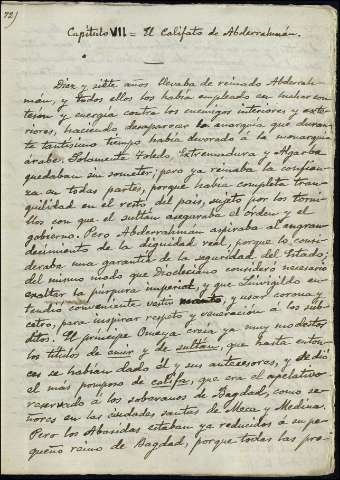 72)
Capítulo VII = El Califato de Abderrahmán.
Diez y siete años llevaba de reinado Abderrah-
mán, y todos ellos los había empleado en luchar con
tesón y energía contra los enemigos interiores y exte-
riores, haciendo desaparecer la anarquía que duran-
te tantísimo tiempo había devorado á la monarquía
árabe. Solamente Toledo, Extremadura y Algarbe
quedaban sin someter; pero ya reinaba la confian-
za en todas partes, porque había completa tran-
quilidad en el resto del país, sujeto por los torni-
llos con que el sultán aseguraba el órden y el
gobierno. Pero Abderrahmán aspiraba al engran-
decimiento de la dignidad real, porque lo consi-
deraba una garantía de la seguridad del Estado;
del mismo modo que Diocleciano consideró necesario
exaltar la púrpura imperial, y que Leuvigildo en-
tendió conveniente vestir manto, y usar corona y
cetro, para inspirar respeto y veneración á los súb-
ditos. El príncipe Omeya creía ya muy modestos
los títulos de emir y de sultán, que hasta enton-
ces se habían dado él y sus antecesores, y se dió
el más pomposo de califa, que era el apelativo
reservado á los soberanos de Bagdad, como se-
ñores en las ciudades santas de Meca y Medina.
Pero los Abasidas estaban ya reducidos á su pe-
queño reino de Bagdad, porque todas las pro-